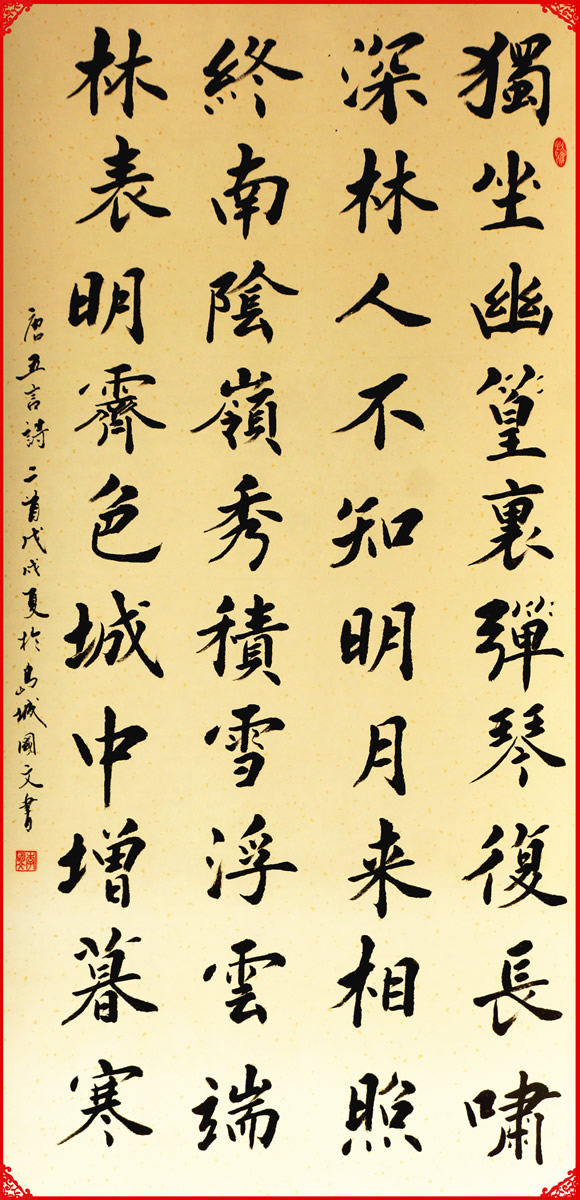 獨坐幽篁裏彈琴復長嘯
深林人不知明月来相照
終南陰嶺秀積雪浮雲端
林表明霽色城中增暮寒
唐五言詩二首戊戌夏於島城國文書